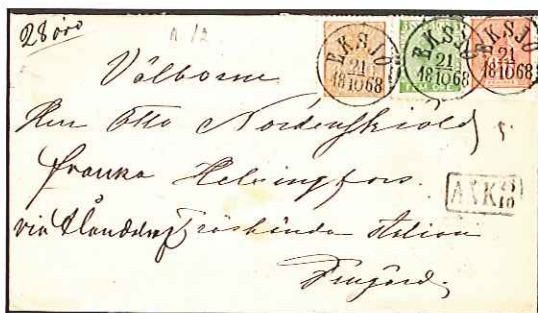 28 öre
EKSJÖ
21
18 10 68
EKSJÖ
21
18 10 68
EKSJÖ
21
18 10 68
FEM ÖRE
Välborne
Herr Otto Nordenskiöld
franko Helsingfors.
ANK 25
10
via Träskända station